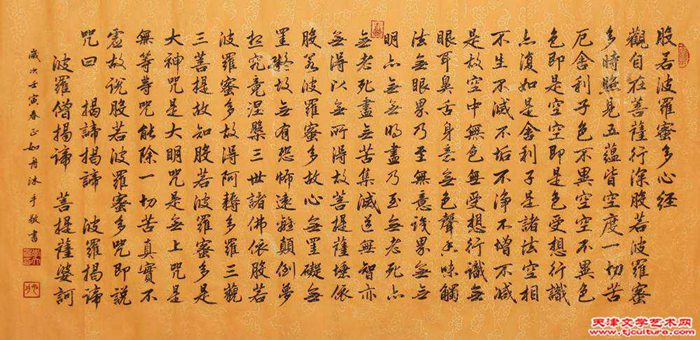 般若波羅蜜多心經
觀自在菩薩行深般若波羅蜜
多時照見五蘊皆空度一切苦
厄舍利子色不異空空不異色
色即是空空即是色受想行識
亦復如是舍利子是諸法空相
不生不滅不垢不淨不增不減
是故空中無色無受想行識無
眼耳鼻舌身意無色聲香味觸
法無眼界乃至無意識界無無
明亦無無明盡乃至無老死亦
無老死盡無苦集滅道無智亦
無得以無所得故菩提薩埵依
般若波羅蜜多故心無罣礙無
罣礙故無有恐怖遠離顛倒夢
想究竟涅槃三世諸佛依般若
波羅蜜多故得阿耨多羅三藐
三菩提故知般若波羅蜜多是
大神咒是大明咒是無上咒是
無等等咒能除一切苦真實不
虛故說般若波羅蜜多咒即說
咒曰 揭諦揭諦 波羅揭諦
波羅僧揭諦 菩提薩婆訶
歲次壬寅春正如舟沐手敬書
天津文学艺术网
www.tjculture.com